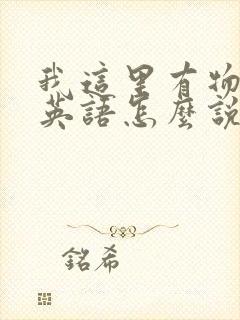 我這里有物
英語怎麼說
銘希